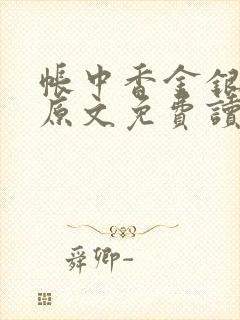 帳中香金銀
原文免費讀
舜卿-